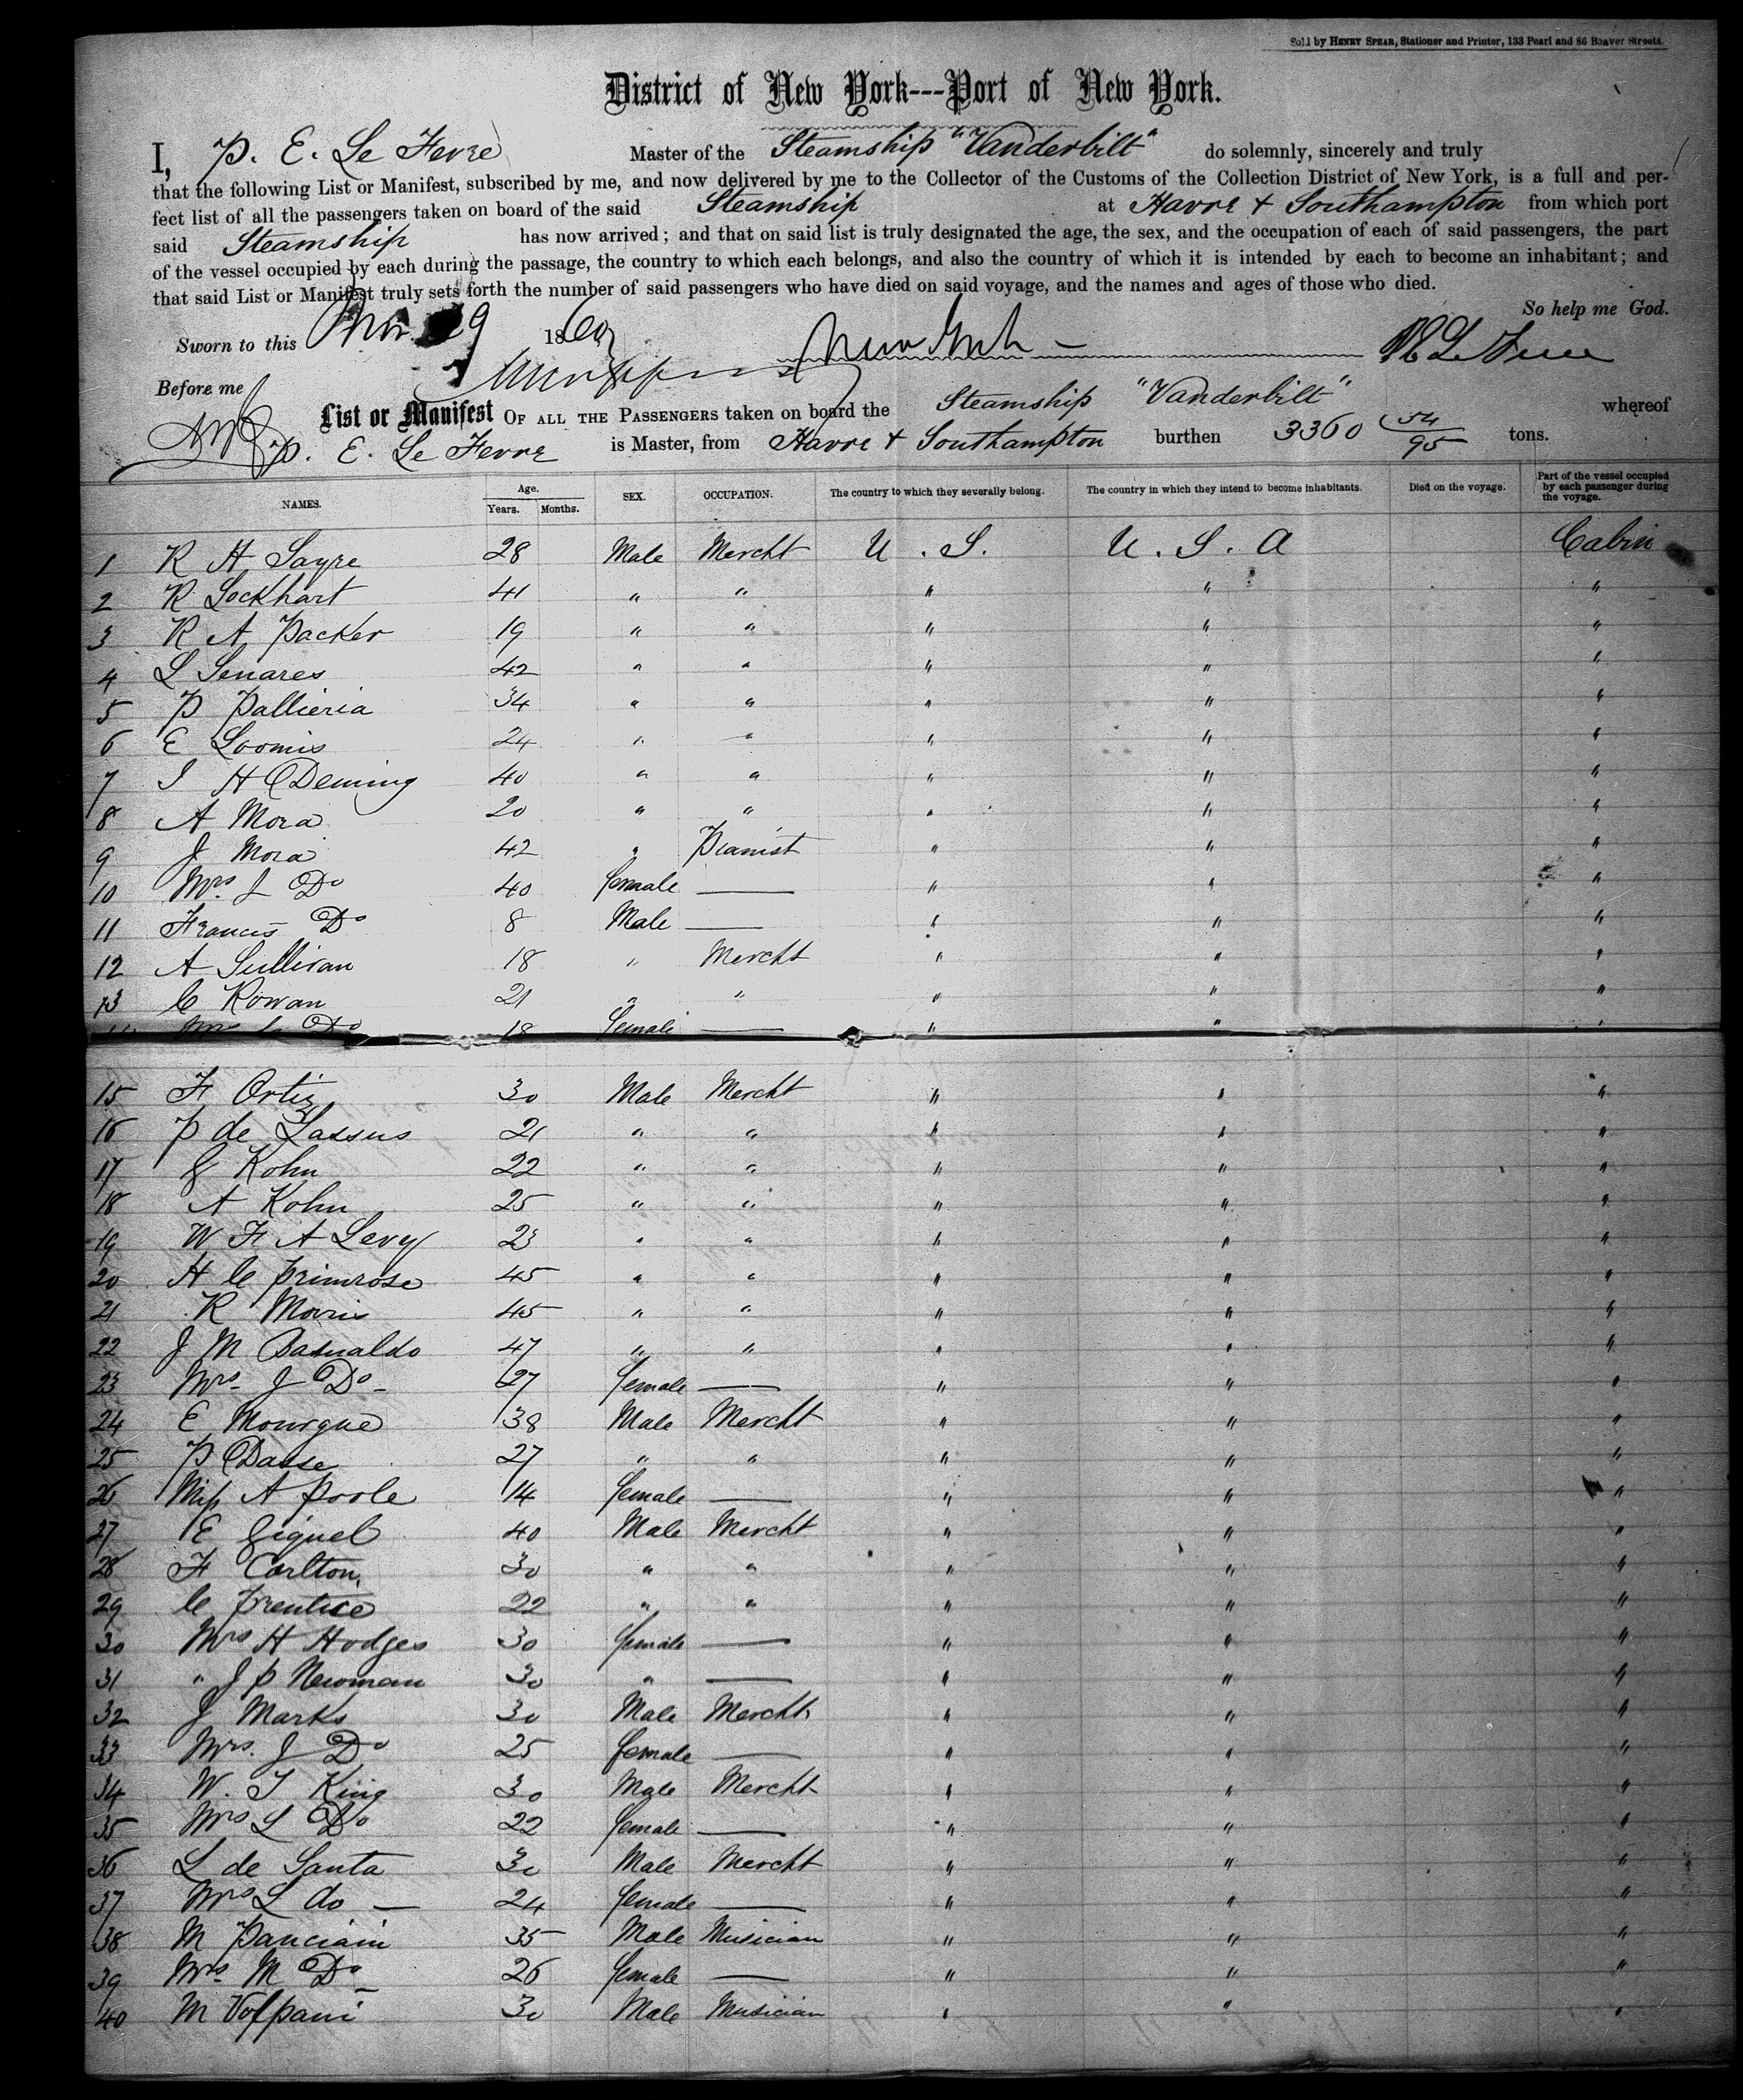 Sold by HENRY SPEAR, Stationer and Printer, 133 Pearl and 86 Beaver Streets.
District of New York---Port of New York.
I, P. E. Le Fevre Master of the Steamship "Vanderbilt" do solemnly, sincerely and truly
that the following List or Manifest, subscribed by me, and now delivered by me to the Collector of the Customs of the Collection District of New York, is a full and per-
fect list of all the passengers taken on board of the said Steamship at Havre & Southampton from which port
said Steamship has now arrived; and that on said list is truly designated the age, the sex, and the occupation of each of said passengers, the part
of the vessel occupied by each during the passage, the country to which each belongs, and also the country of which it is intended by each to become an inhabitant; and
that said List or Manifest truly sets forth the number of said passengers who have died on said voyage, and the names and ages of those who died.
So help me God.
Sworn to this 9 1860
Before me
List or Manifest OF ALL THE PASSENGERS taken on board the Steamship "Vanderbilt" whereof
P. E. Le Fevre is Master, from Havre & Southampton burthen 3360 54/95 tons.
NAMES. Age. Years. Months. SEX. OCCUPATION. The country to which they severally belong. The country in which they intend to become inhabitants. Died on the voyage. Part of the vessel occupied by each passenger during the voyage.
1 R H Sayre 28 Male Mercht U. S. U. S. A Cabin
2 R Lockhart 41 " " " " "
3 R A Packer 19 " " " " "
4 L Senares 42 " " " " "
5 P Pallieria 34 " " " " "
6 E Loomis 24 " " " " "
7 I H Deming 40 " " " " "
8 A Mora 20 " " " " "
9 J Mora 42 " Pianist " " "
10 Mrs J Do 40 female — " " "
11 Francis Do 8 Male — " " "
12 A Sullivan 18 " Mercht " " "
13 C Rowan 21 " " " " "
Mrs C Do 18 female — " " "
15 F Ortiz 30 Male Mercht " " "
16 P de Lassus 21 " " " " "
17 J Kohn 22 " " " " "
18 A Kohn 25 " " " " "
19 W F A Levy 23 " " " " "
20 H C Primrose 45 " " " " "
21 R Morris 45 " " " " "
22 J M Basualdo 47 " " " " "
23 Mrs J Do 27 female — " " "
24 E Mourgue 38 Male Mercht " " "
25 P Dasse 27 " " " " "
26 Miss A Poole 14 female — " " "
27 E Giquel 40 Male Mercht " " "
28 F Carlton 30 " " " " "
29 C Prentice 22 " " " " "
30 Mrs H Hodges 30 female — " " "
31 " J P Newman 30 " — " " "
32 J Marks 30 Male Mercht " " "
33 Mrs. J Do 25 female — " " "
34 W. T King 30 Male Mercht " " "
35 Mrs L Do 22 female — " " "
36 L de Santa 30 Male Mercht " " "
37 Mrs L do — 24 female — " " "
38 M Panciani 35 Male Musician " " "
39 Mrs M Do 26 female — " " "
40 M Volpani 30 Male Musician " " "